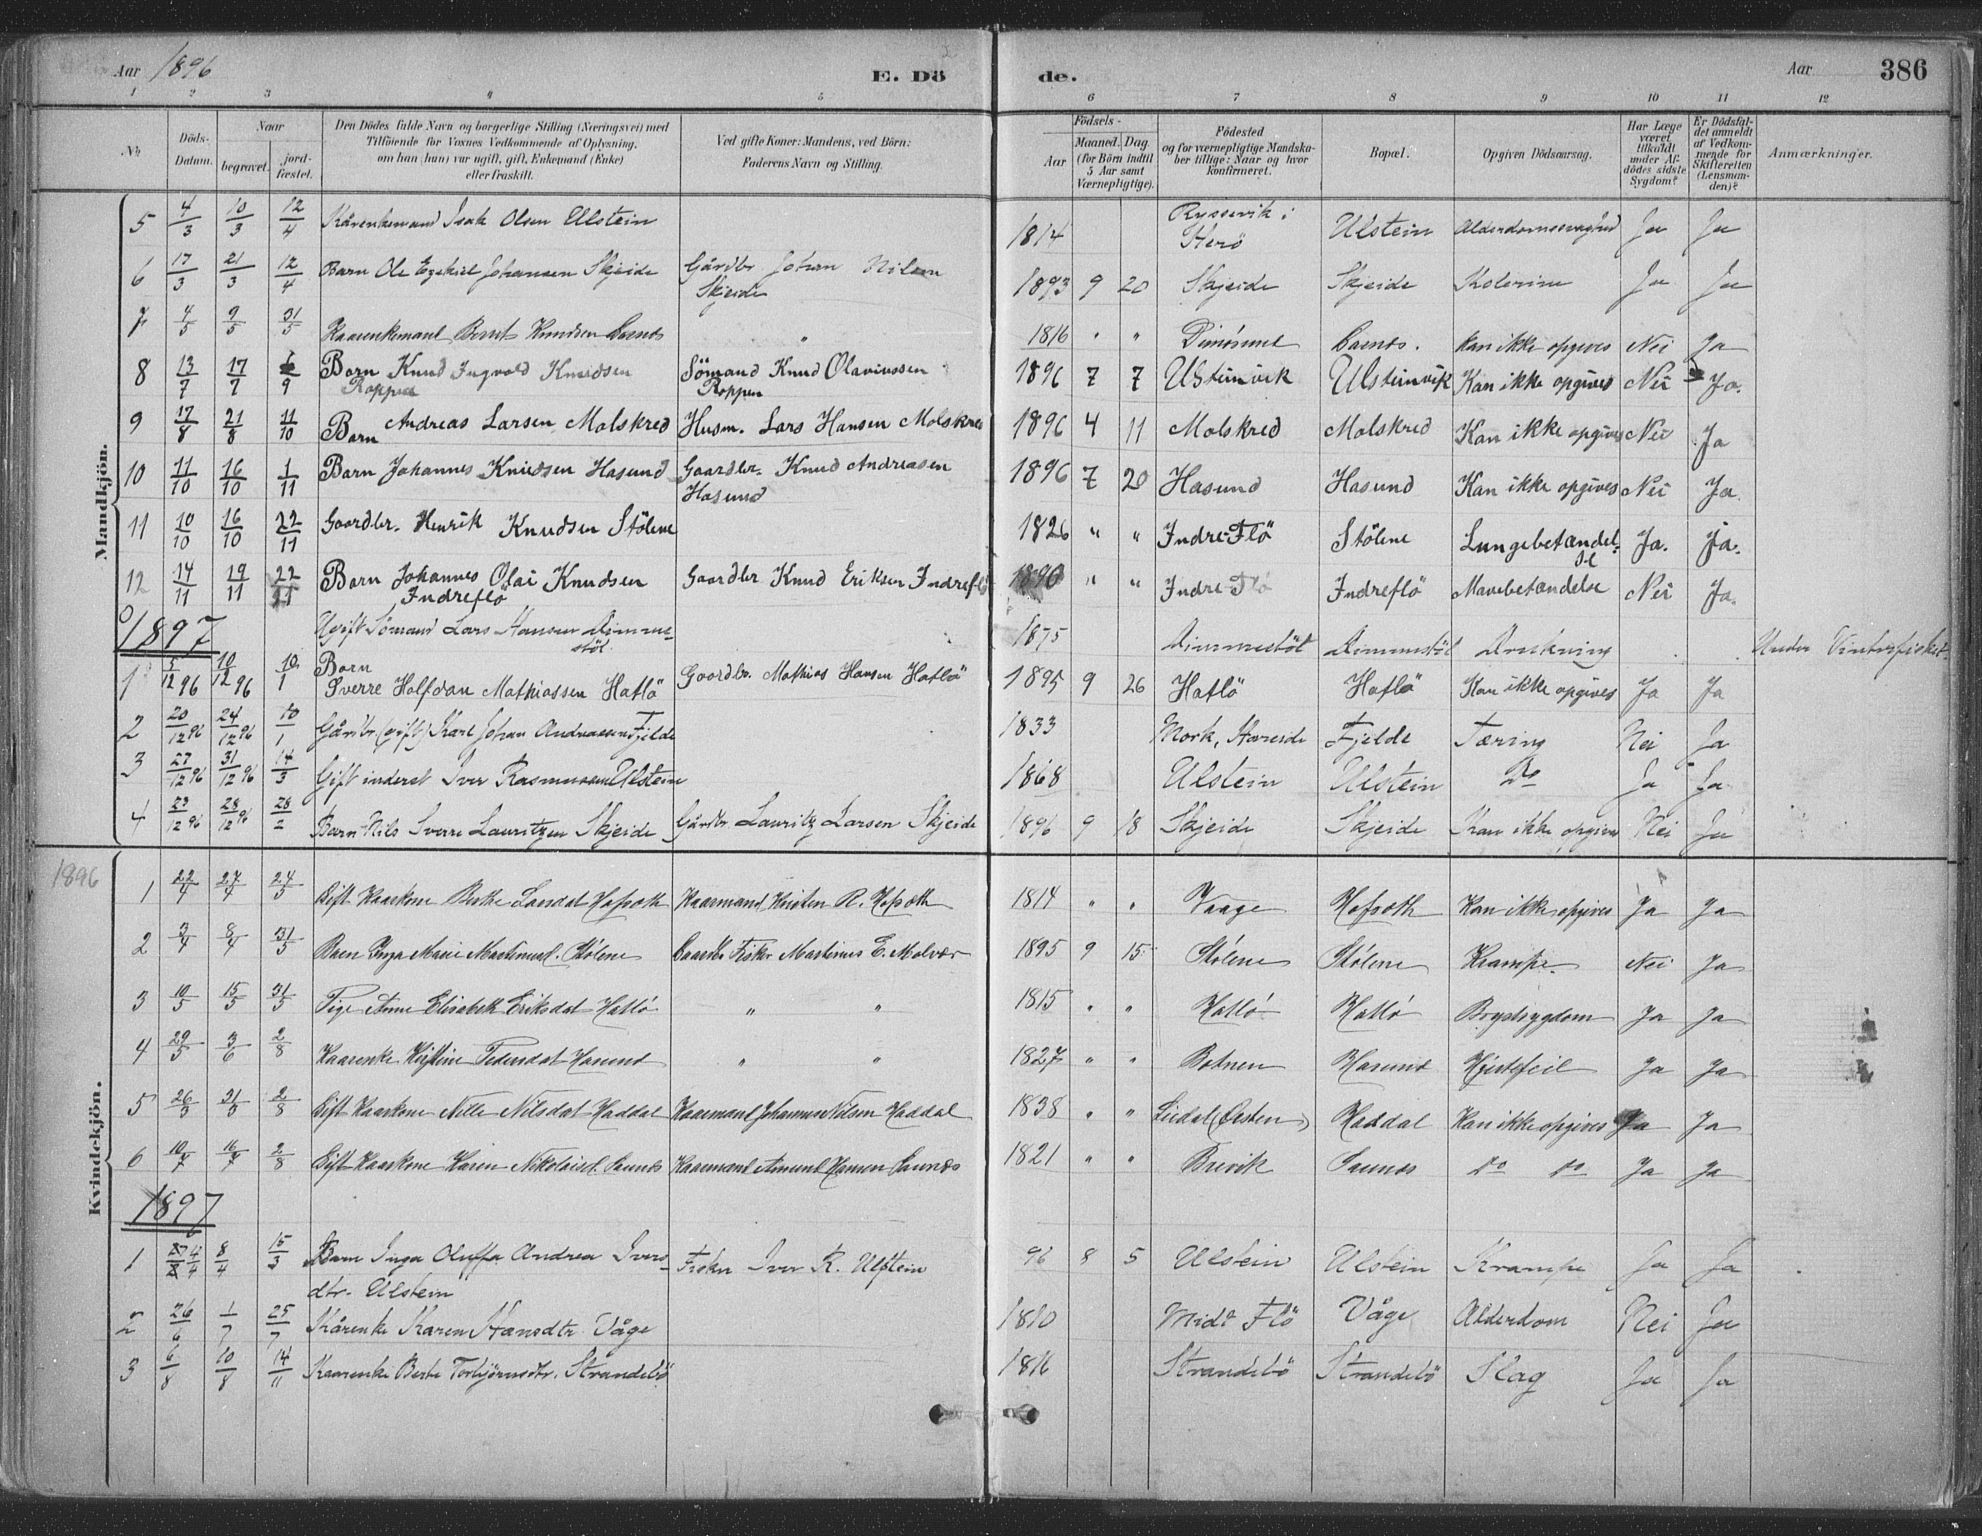 Aar 1896 E. Dö de. Aar 386
1 2 3 4 5 6 7 8 9 10 11 12
No. Döds-Datum. Naar begravet. jord-fæstet. Den Dödes fulde Navn og borgerlige Stilling (Næringsvei) med Tilföiende for Voxnes Vedkommende af Oplysning, om han (hun) var ugift, gift, Enkemand (Enke) eller fraskilt. Ved gifte Koner: Mandens, ved Börn: Faderens Navn og Stilling. Födsels- Aar Maaned. Dag. (for Börn indtil 5 Aar samt Værnepligtige). Födested og for værnepligtige Mandskaber tillige: Naar og hvor konfirmeret. Bopæl. Opgiven Dödsaarsag. Har Læge været tilkaldt under Afdödes sidste Sygdom? Er Dödsfaldet anmeldt af Vedkommende for Skifteretten (Lensmanden)? Anmærkninger.
Mandkjön.
5 4/3 10/3 12/4 Kårenkemand Isak Olsen Ulstein 1814 Ryssevik i Herö Ulstein Alderdomssvaghed Ja Ja
6 17/3 21/3 12/4 Barn Ole Ezekiel Johansen Skjeide Gårdbr Johan Nilsen Skjeide 1893 9 20 Skjeide Skjeide Kolerine Ja Ja
7 4/5 9/5 31/5 Kaarenkemand Bernt Knudsen " 1816 " " kan ikke opgives Nei Ja
8 13/7 17/7 /9 Barn Knud Ingvald Knudsen Roppen Sömand Knud Olaviussen Roppen 1896 7 7 Ulsteinvik Ulsteinvik Kan ikke opgives Nei Ja.
9 17/8 21/8 11/10 Barn Andreas Larsen Molskred Husm. Lars Hansen Molskred 1896 4 11 Molskred Molskred Kan ikke opgives Nei Ja
10 11/10 16/10 1/11 Barn Johannes Knudsen Hasund Gaardbr. Knud Andreasen Hasund 1896 7 20 Hasund Hasund Kan ikke opgives Nei Ja.
11 10/10 16/10 22/11 Gaardbr. Henrik Knudsen Stölene 1826 " " Indre-Flö Stölene Lungebetændelse Ja. Ja.
12 14/11 19/11 22/11 Barn Johannes Olai Knudsen Indreflö Gaardbr Knud Eriksen Indreflö 1890 " " Indre-Flö Indreflö Mavebetændelse Nei Ja.
1897 Ugift Sömand Lars Hansen Dimmestöl 1875 Dimmestöl Dimmestöl Drukning Under Vinterfisket
1 5/12 96 10/12 96 10/1 Barn Sverre Halfdan Mathiassen Hatlö Gaardbr. Mathias Hansen Hatlö 1895 9 26 Hatlö Hatlö Kan ikke opgives Ja Ja
2 20/12 96 24/12 96 10/1 Gårdbr. (gift) Karl Johan Andreassen Fjelde 1833 Mork, Hareide Fjelde Tæring Nei Ja
3 27/12 96 31/12 96 14/3 Gift inderst Iver Rasmussen Ulstein 1868 Ulstein Ulstein Do Ja Ja
4 23/12 96 28/12 96 28/2 Barn Nils Sverre Lauritzen Skjeide Gårdbr Lauritz Larsen Skjeide 1896 9 18 Skjeide Skjeide Kan ikke opgives Nei Ja
Kvindekjön.
1896
1 22/4 27/4 24/5 Gift Kaarkone Berthe Larsdat Hofsæth Kaarmand Kristen R. Hofsæth 1814 " " Vaage Hofsæth Kan ikke opgives Ja Ja
2 3/4 8/4 31/5 Barn Inga Marie Martinusd. Stölene Fisker Martinus E. Molvær 1895 9 15 Stölene Stölene Krampe. Nei Ja
3 10/5 15/5 31/5 Pige Anne Elisabeth Eriksdat Hatlö " " 1815 " " Hatlö Hatlö Brystsygdom Ja Ja
4 29/5 3/6 2/8 Kaarenke Kirstine Pedersdat Hasund " " 1827 " " Botnen Hasund Hjertefeil Ja Ja
5 26/5 31/5 2/8 Gift Kaarkone Nille Nilsdat Haddal Kaarmand Johannes Nilsen Haddal 1838 " " Leedal (Örsten) Haddal Kan ikke opgives Ja Ja
6 10/7 16/7 2/8 Gift Kaarkone Karen Nikolaisd. Saunes Kaarmand Amund Hansen Saunes 1821 " " Brevik Saunes Do Do Ja Ja
1897
1 4/4 8/4 15/3 Barn Inga Oluffa Andrea Iversdtr. Ulstein Fisker Iver R. Ulstein 96 8 5 Ulstein Ulstein Krampe Ja Ja
2 26/6 1/7 25/7 Kårenke Karen Hansdtr. Våge 1810 Midt Flö Våge Alderdom Nei Ja
3 6/8 10/8 14/11 Kaarenke Berte Torbjörnsdtr. Strandebö 1816 Strandebö Strandebö Slag Ja Ja